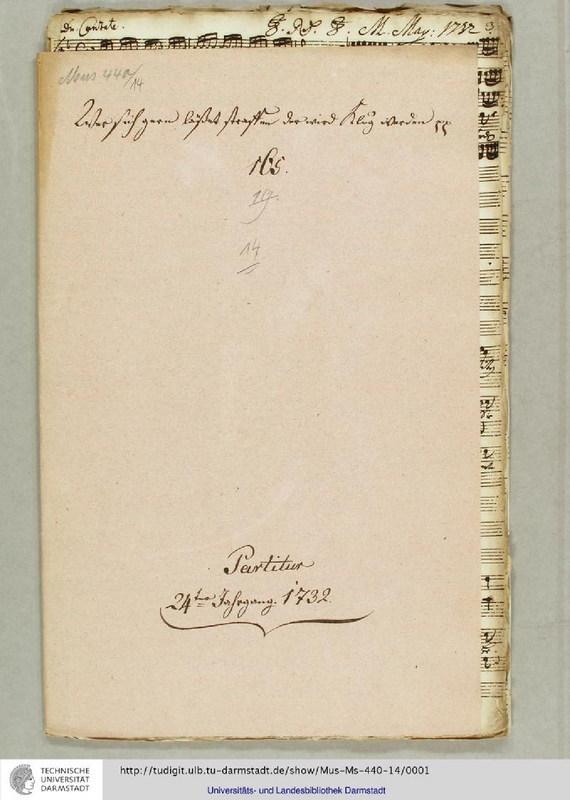 Do Cantate.
M. May. 1732
3
Mus 440/14
Wer sich gern läßet straffen der wird Klug werden pp
165.
19
14
Partitur
24te Jahrgang. 1732.
TECHNISCHE
UNIVERSITÄT
DARMSTADT
http://tudigit.ulb.tu-darmstadt.de/show/Mus-Ms-440-14/0001
Universitäts- und Landesbibliothek Darmstadt